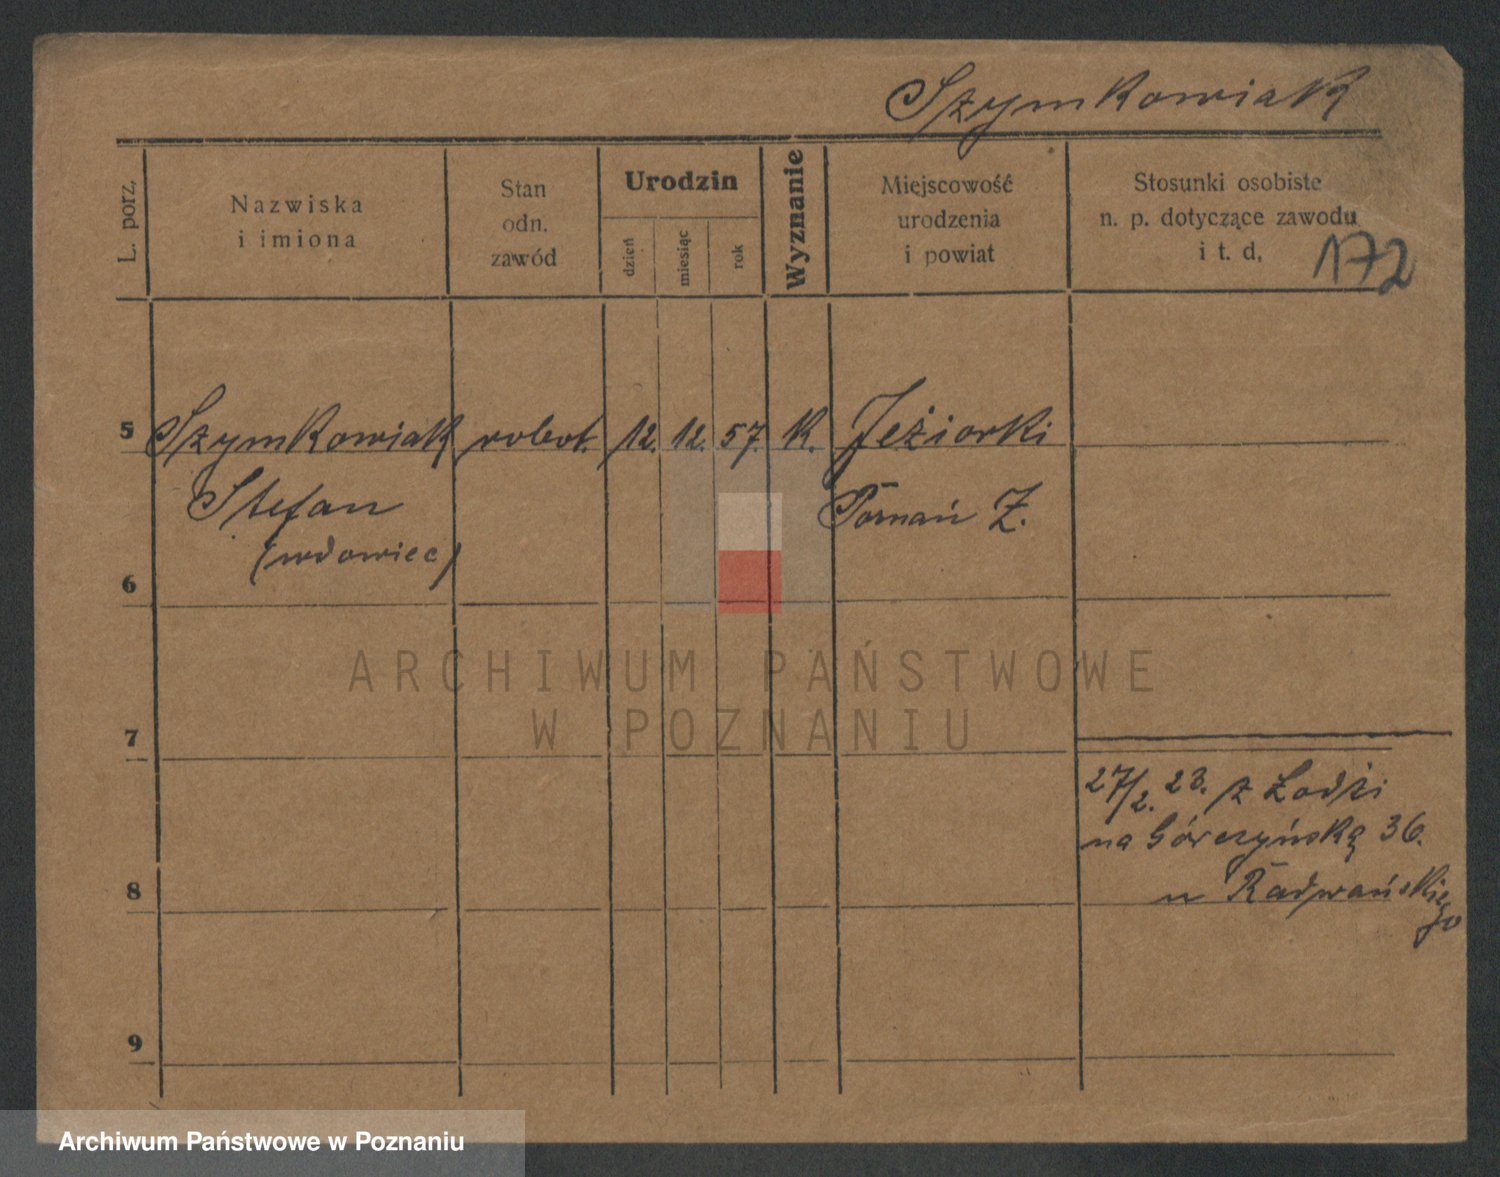 Szymkowiak
L. porz.
Nazwiska
i imiona
Stan
odn.
zawód
Urodzin
dzień
miesiąc
rok
Wyznanie
Miejscowość
urodzenia
i powiat
Stosunki osobiste
n. p. dotyczące zawodu
i t. d.
172
5 Szymkowiak robot. 12. 12. 57. K. Jeżiorki
Stefan Poznań Z.
(wdowiec)
6
ARCHIWUM PAŃSTWOWE
W POZNANIU
7
27/2. 23. z Łodżi
na Górczyńską 36.
8 u Radwańskie
go
9
Archiwum Państwowe w Poznaniu